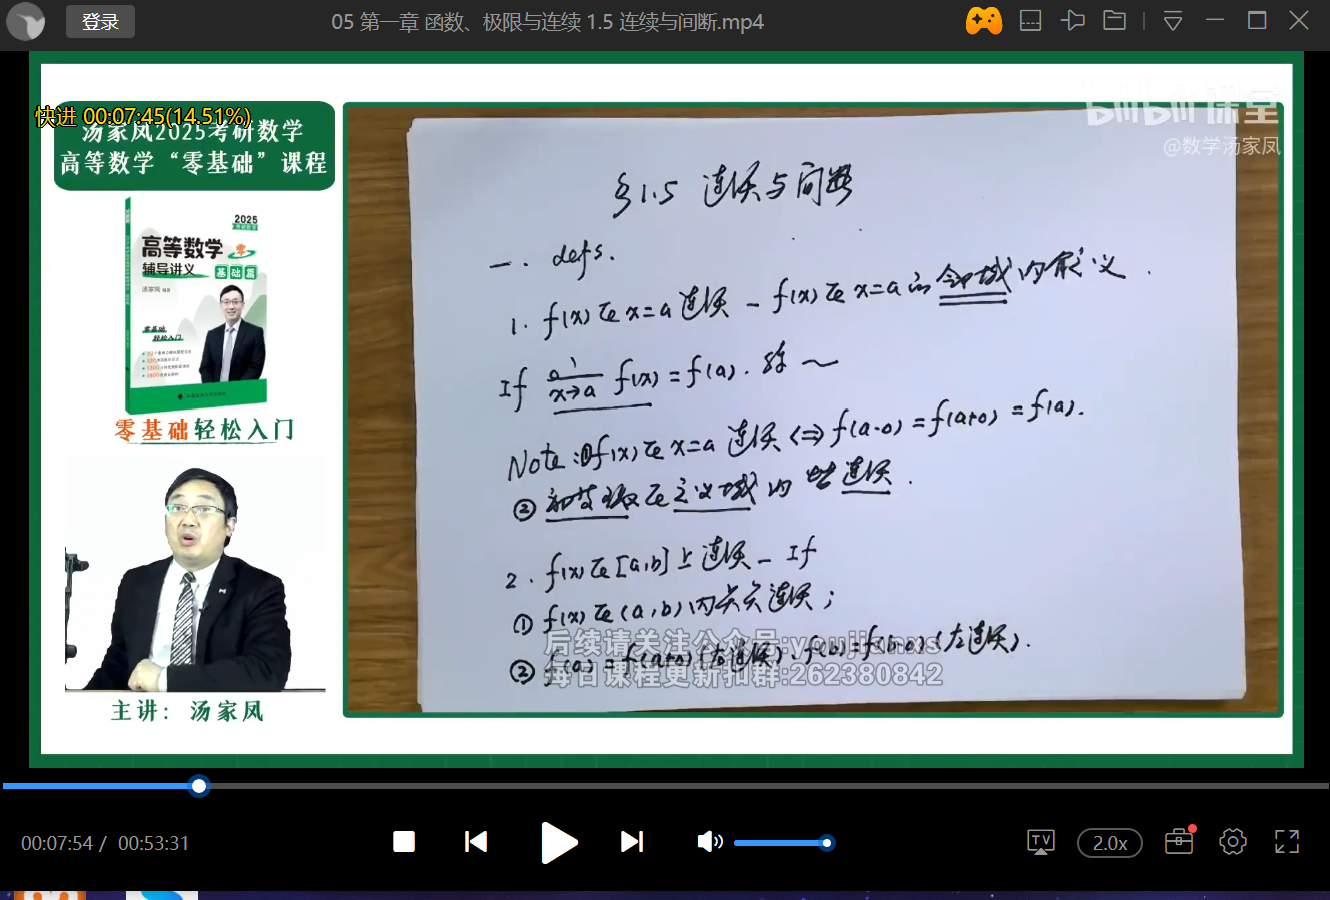 登录
05 第一章 函数、极限与连续 1.5 连续与间断.mp4
快进 00:07:45(14.51%)
汤家凤2025考研数学
高等数学“零基础”课程
bilibili课堂
@数学汤家凤
2025
高等数学
零
辅导讲义
基础篇
汤家凤
零基础
轻松入门
零基础轻松入门
主讲：汤家凤
§1.5 连续与间断
一. defs.
1. f(x)在x=a连续 - f(x)在x=a的邻域内有定义.
If lim x→a f(x)=f(a). 称～
Note:①f(x)在x=a连续⇔f(a-0)=f(a+0)=f(a).
②初等函数在定义域内皆连续.
2. f(x)在[a,b]上连续 - If
①f(x)在(a,b)内点点连续;
②f(a)=f(a+0)(右连续). f(b)=f(b-0)(左连续).
后续请关注公众号:
每日课程更新扣群:262380842
00:07:54 / 00:53:31
TV
2.0x